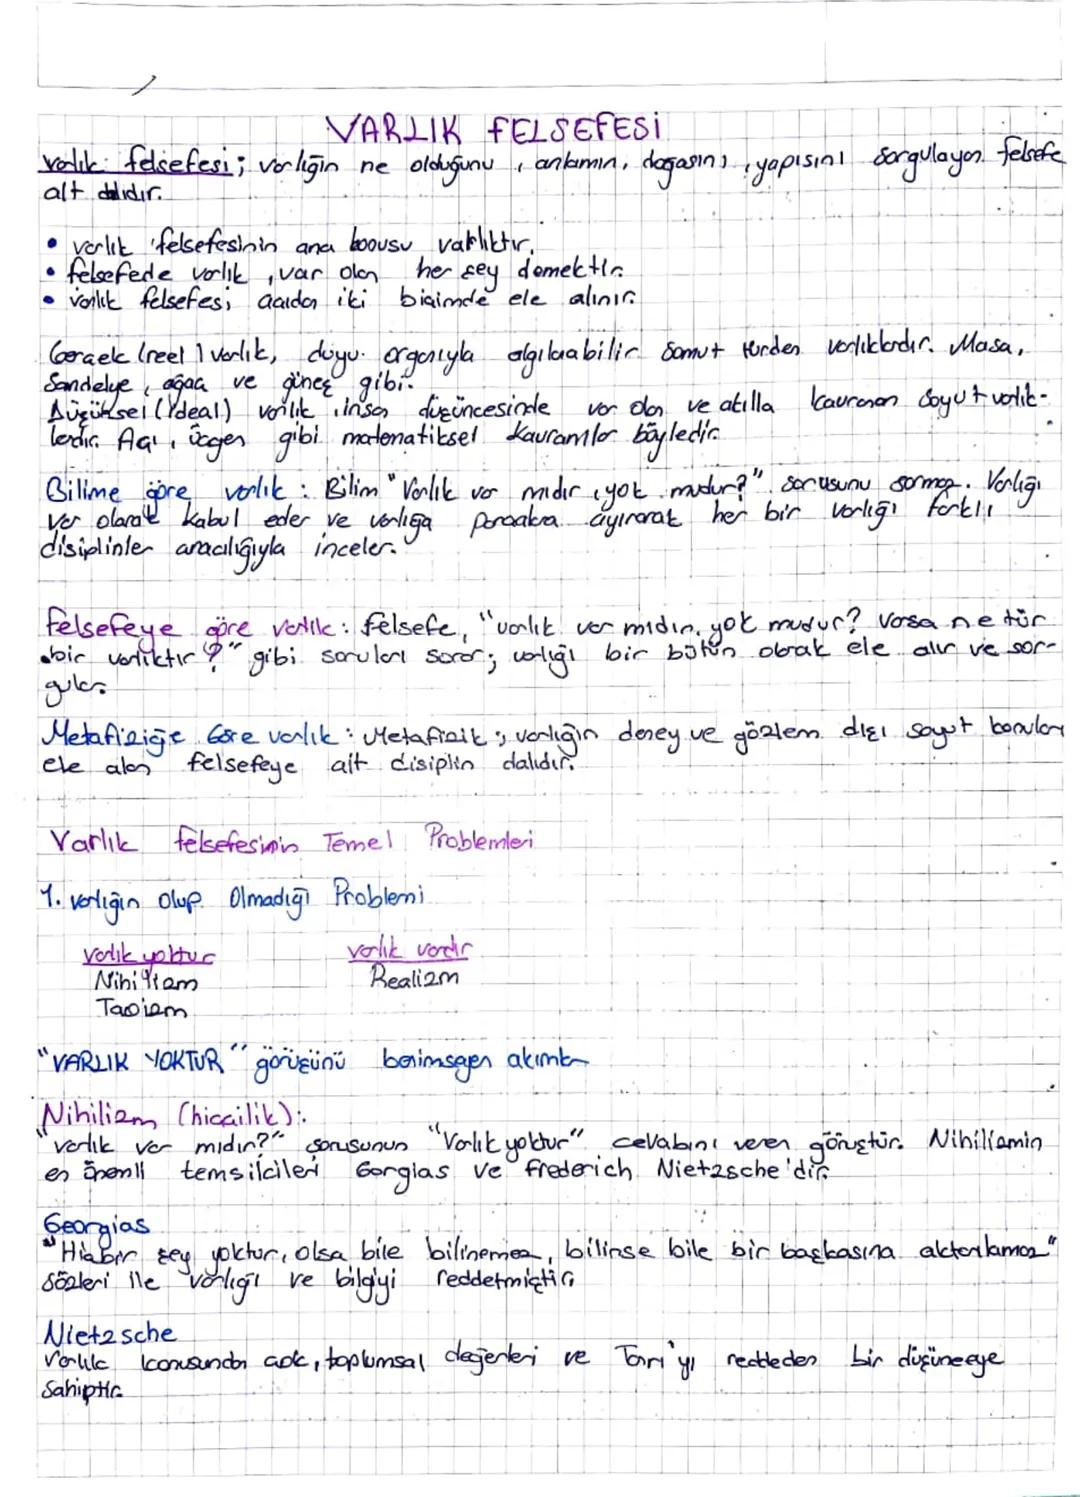 VARLIK FELSEFESİ
varlık felsefesi; varlığın ne olduğunu, anlamın, doğasını, yapısını sorgulayan felsefe
alt dalıdır.
• varlık felsefesinin ana konusu varlıktır.
• felsefede varlık, var olan her şey demektir.
• varlık felsefesi açıdan iki biçimde ele alınır.
Gerçek (reel) varlık, duyu organıyla algılanabilir somut türden varlıklardır. Masa,
Sandelye, ağaç ve güneş gibi.
Düşüksel (İdeal) varlık, insan düşüncesinde var olan ve akılla kavranan soyut varlık-
lerdir. Açı, üçgen gibi matematiksel kavramlar böyledir.
Bilime göre varlık: Bilim "Varlık var mıdır, yok mudur?" sorusunu sormaz. Varlığı
var olarak kabul eder ve varlığa parçalara ayırarak her bir varlığı farklı
disiplinler aracılığıyla inceler.
felsefeye göre varlık: felsefe, "varlık var mıdır, yok mudur? Varsa ne tür
bir varlıktır?" gibi soruları sorar; varlığı bir bütün olarak ele alır ve sor-
gular.
Metafiziğe Göre varlık: Metafizik; varlığın deney ve gözlem dışı soyut konuları
ele alan felsefeye ait disiplin dalıdır.
Varlık felsefesinin Temel Problemleri
1. varlığın Olup Olmadığı Problemi
varlık yoktur varlık vardır
Nihilizm Realizm
Taoizm
"VARLIK YOKTUR" görüşünü benimseyen akımlar
Nihilizm (hiççilik):
"varlık var mıdır?" sorusunun "Varlık yoktur" cevabını veren görüştür. Nihilizmin
en önemli temsilcileri Gorgias ve frederich Nietzsche'dir.
Georgias
"Hiçbir şey yoktur, olsa bile bilinemez, bilinse bile bir başkasına aktarılamaz"
sözleri ile varlığı ve bilgiyi reddetmiştir.
Nietzsche
Varlık konusundan çok, toplumsal değerleri ve Tanrı'yı reddeden bir düşünceye
Sahiptir.